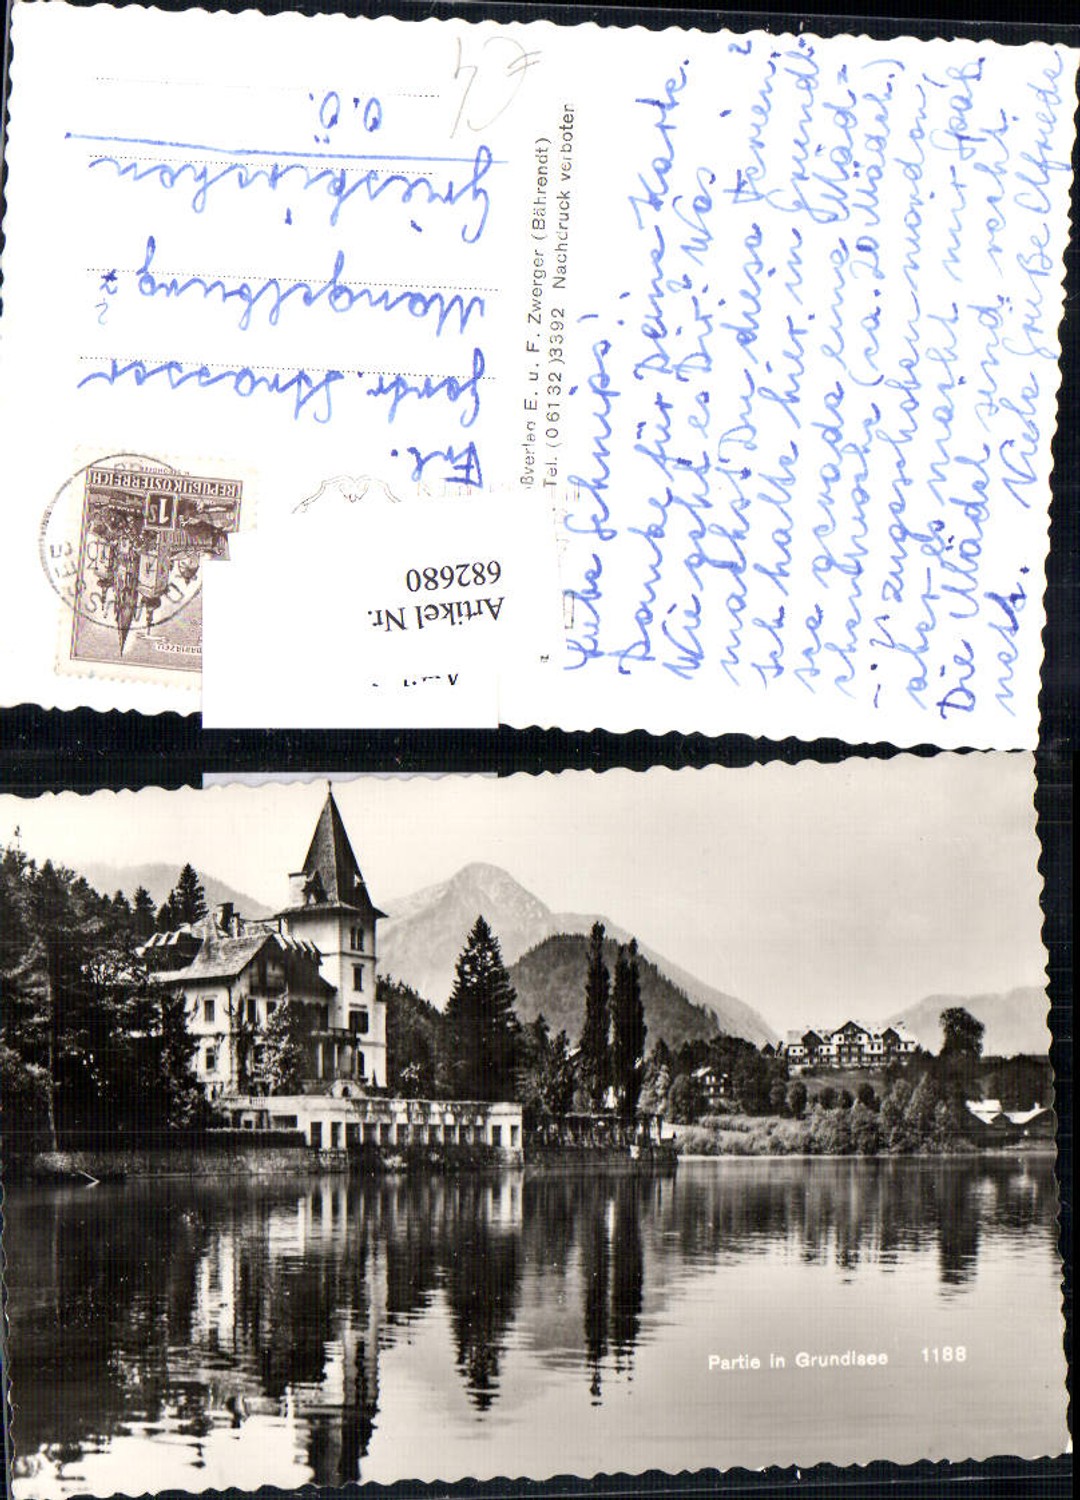 Liebe Schnipsi!
Danke für Deine Karte.
Wie geht es Dir? Was
machst Du diese Ferien?
Ich halte hier in Grundl-
see gerade eine Mäd-
chenwoche (ca. 20 Mädch.)
aber es macht mir Spaß.
Die Mädel sind recht
nett. Viele Grüße Elfriede
Frl.
Gertr. Strasser
Manglburg
Grieskirchen
O.Ö.
E. u. F. Zwerger (Bährendt)
Tel. (06132)3392 Nachdruck verboten
REPUBLIK ÖSTERREICH
1 S
MARIAZELL
Artikel Nr.
682680
Partie in Grundlsee 1188